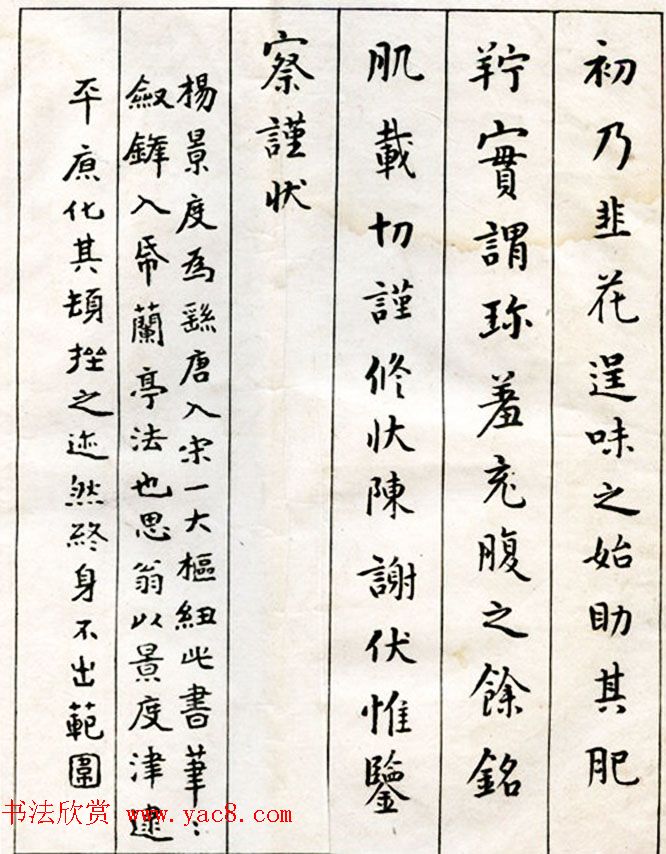 初乃韭花逞味之始助其肥
羜實謂珎羞充腹之餘銘
肌載切謹修狀陳謝伏惟鑒
察謹狀
楊景度為繇唐入宋一大樞紐此書筆〻
斂鋒入帋蘭亭法也思翁以景度津逮
平原化其頓挫之迹然終身不出範圍
书法欣赏 www.yac8.com